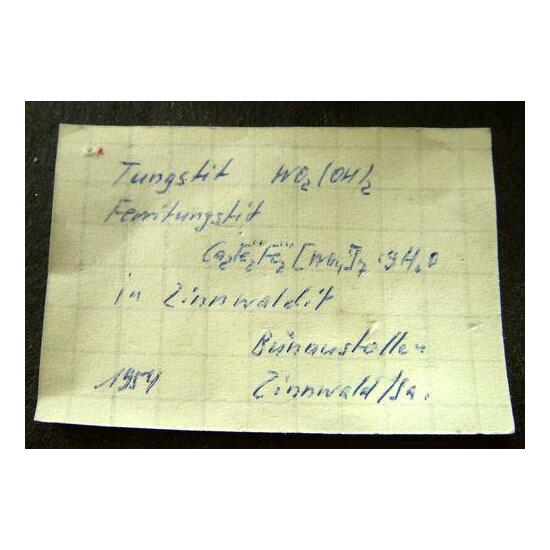 Tungstit WO₂(OH)₂
Ferritungstit
Ca₂Fe₂¨Fe₂¨˙[WO₄]₇ · 9H₂O
in Zinnwaldit
Bünaustollen
1954 Zinnwald/Sa.